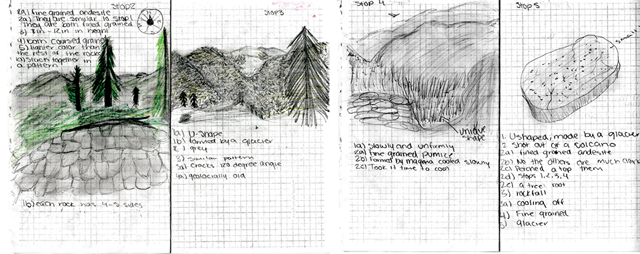 Stop2
1A) fine grained andesite
2a) They are similar to stop1
They are both fined grained
3) 8in - 12in in height
4) both coursed grained
5) lighter color than
the rest of the rock
6a) Stacks together in
a pattern!
1b) each rock has 4-5 sides
Stop3
1a) U-shape
1b) formed by a glacier
2. grey
3) similar pattern
3) Cracks 120 degree angle
4a) geologically old
Stop 4
unique
shape
1a) slowly and uniformly
2a) fine grained pumice
2b) formed by magma cooled slowly
2c) Took it time to cool
Stop 5
1. U shaped, made by a glacier
2. Shot out of a volcano
2a) fined grained andesite
2b) No the others are much
2c) Perched a top them
2d) Stops 1, 2, 3, 4
2e) a tree root
3) rockfall
3a) cooling off
4) Fine grained
5) glacier